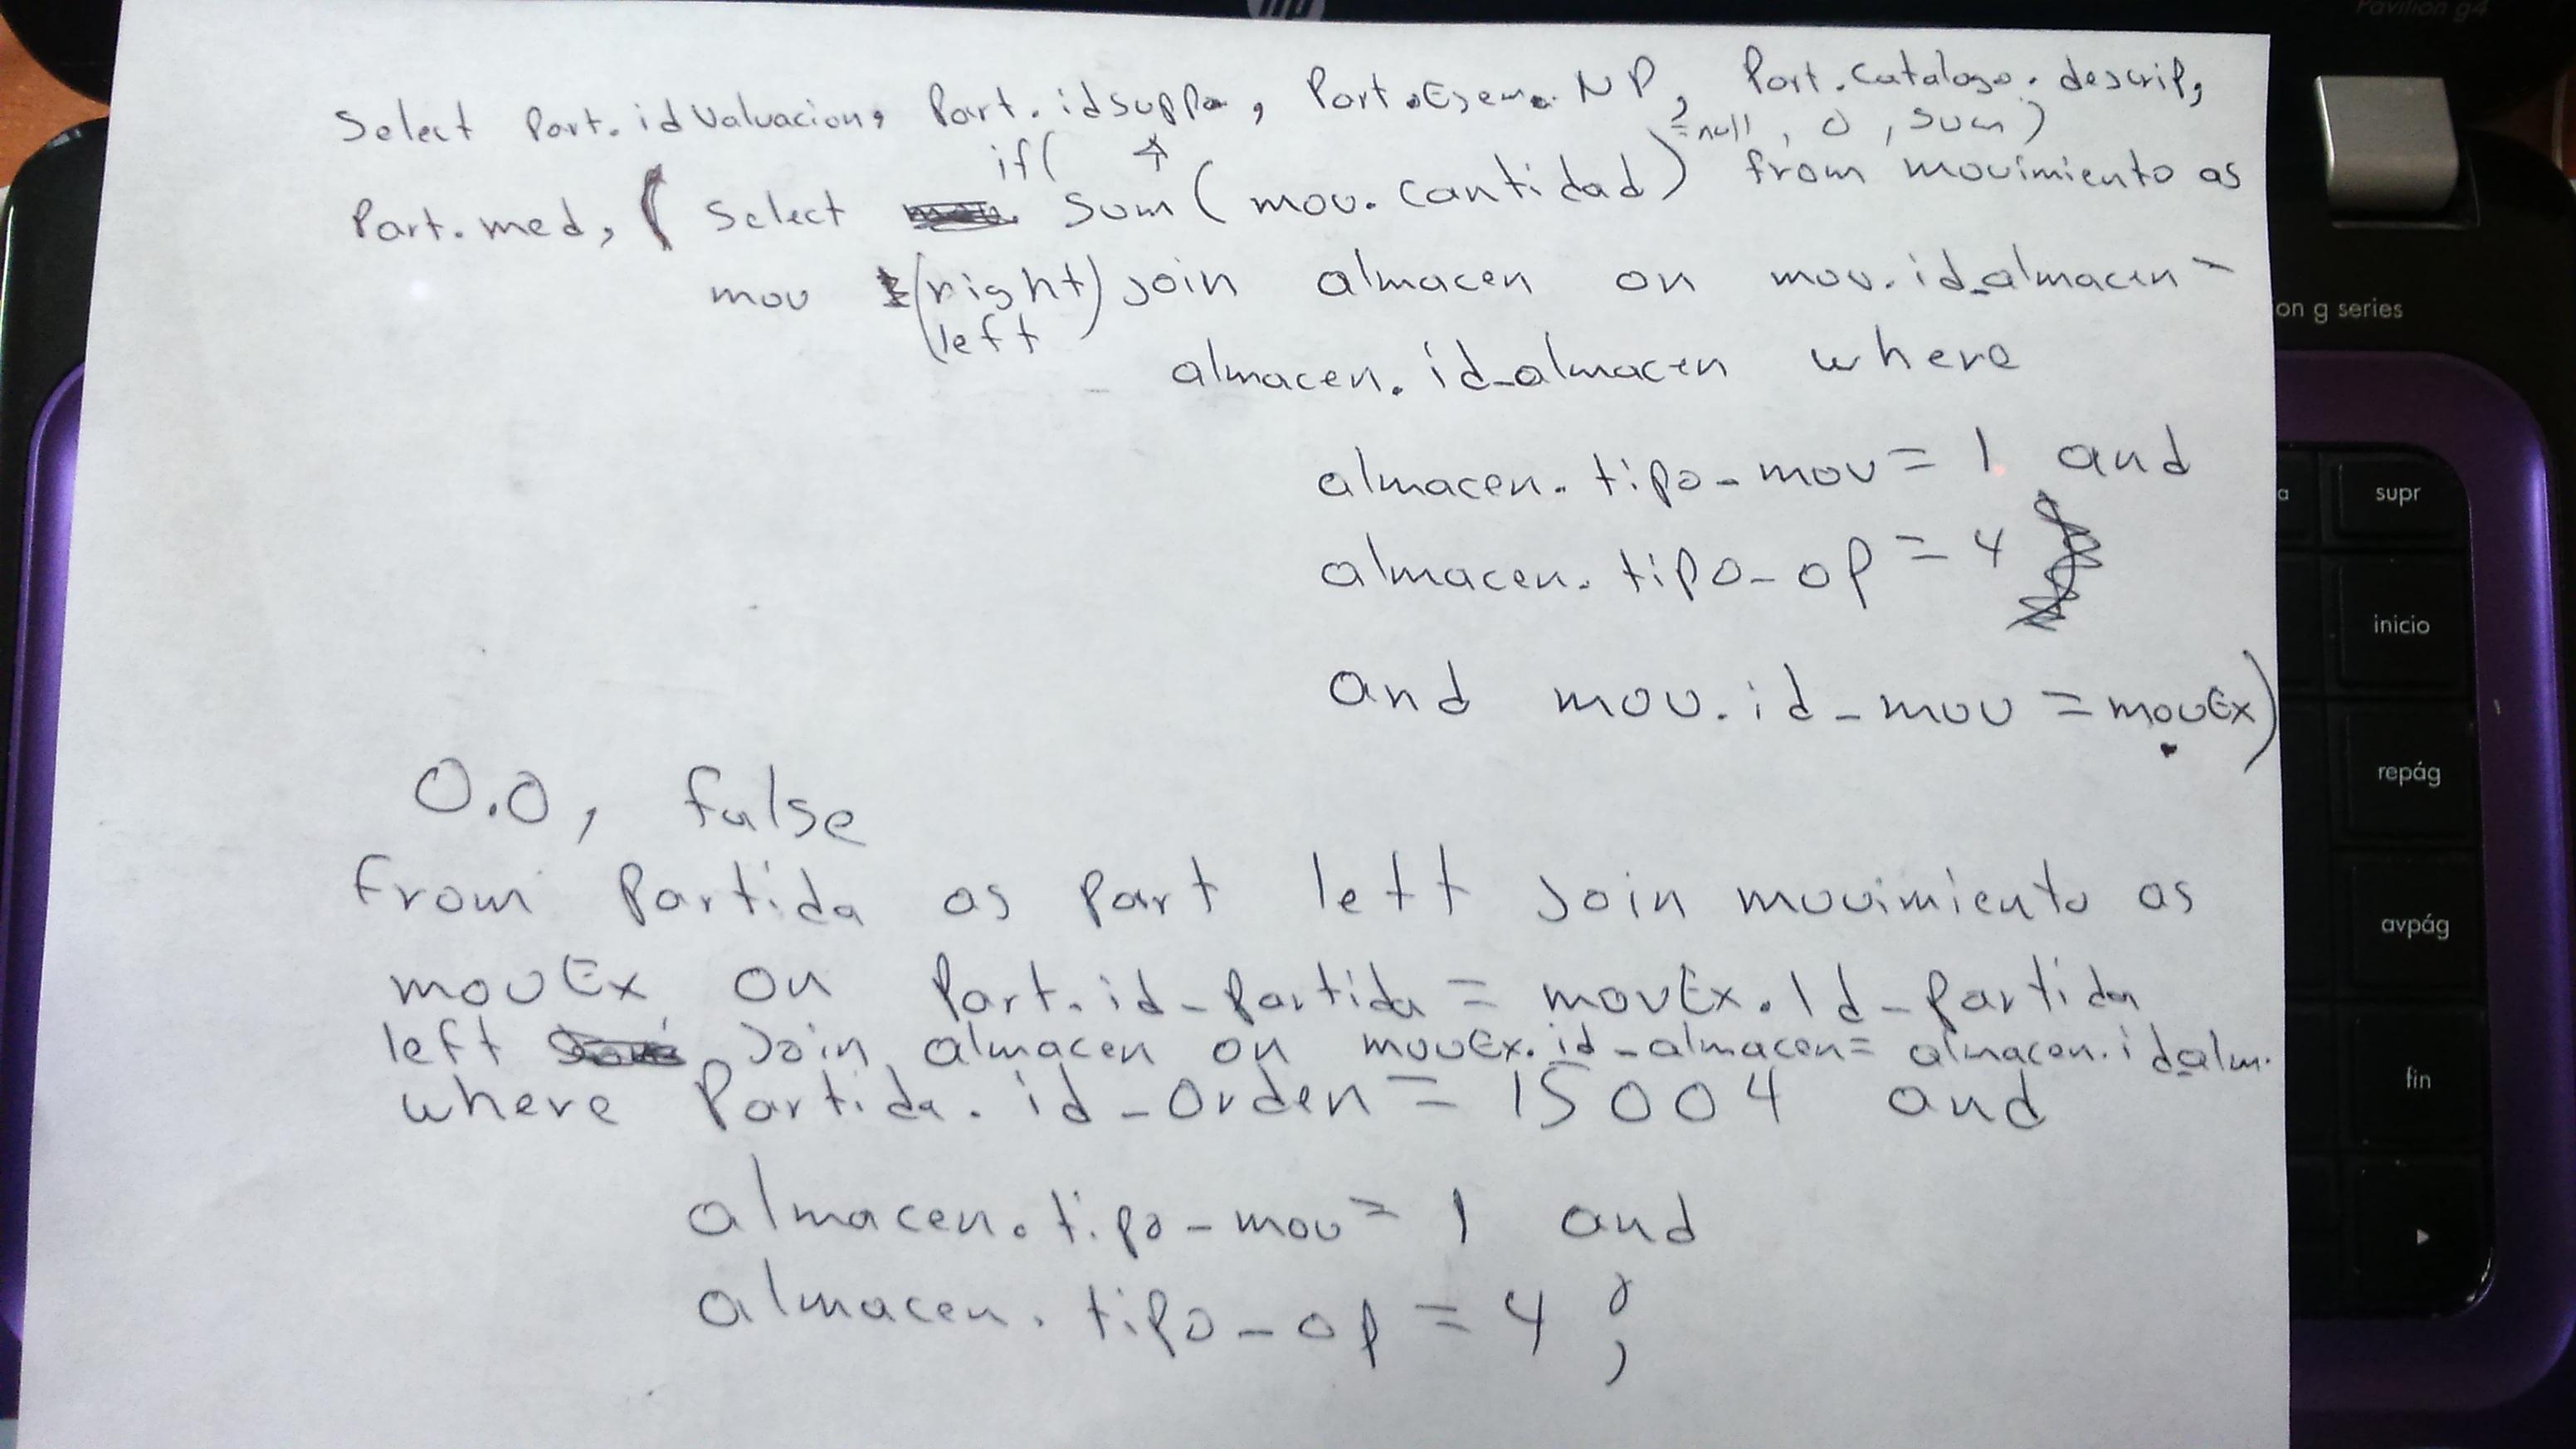 Pavilion g4
Select Part.idValuacion, Part.idsuppa, Part.Ejem. NP, Part.Catalogo.descrip,
if( =null, 0, sum)
Part.med, ( Select sum(mov.cantidad) from movimiento as
mov (right) join almacen on mov.id_almacen =
left
almacen.id_almacen where
on g series
almacen.tipo-mov = 1 and
almacen.tipo-op = 4
and mov.id-mov = movEx)
0.0, false
from Partida as part left join movimiento as
movEx on Part.id-partida = movEx.Id-partida
left Join almacen on movEx.id-almacen = almacen.id_alm.
where Partida.id-Orden = 15004 and
almacen.tipo-mov = 1 and
almacen.tipo-op = 4 ;
a
supr
inicio
repág
avpág
fin